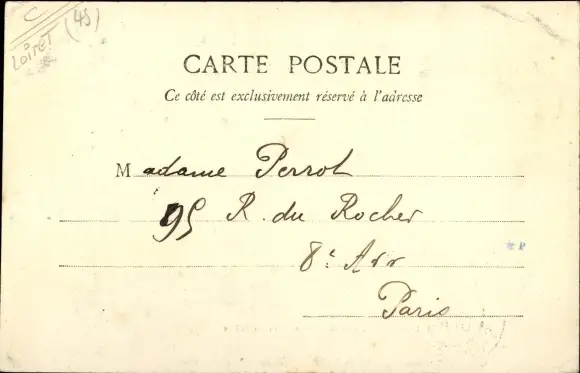 C
LOIRET (45)
CARTE POSTALE
Ce côté est exclusivement réservé à l'adresse
Madame Perrot
95 R. du Rocher
8e Arr
Paris